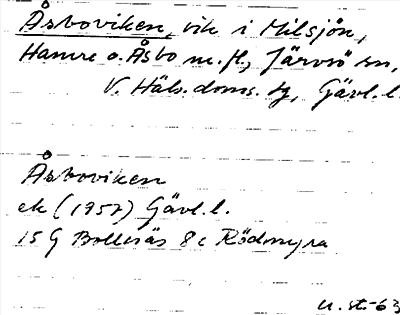 Åsboviken, vik i Milsjön,
Hamre o. Åsbo m. fl., Järvsö sn,
V. Häls. doms. tg, Gävl. l.
Åsboviken
ek (1957) Gävl. l.
15 G Bollnäs 8 c Rödmyra
u. st. -63